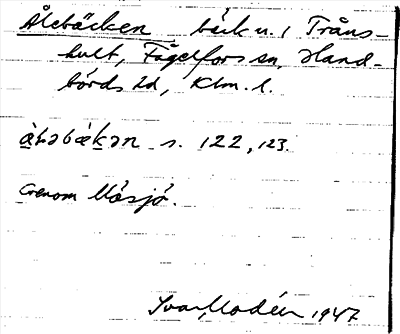 Ålebäcken bäck n. i Tråns-
hult, Fågelfors sn, Hand-
börds hd, Klm. l.
àləbækən s. 122, 123.
Genom Måsjö.
Ivar Modéer 1947